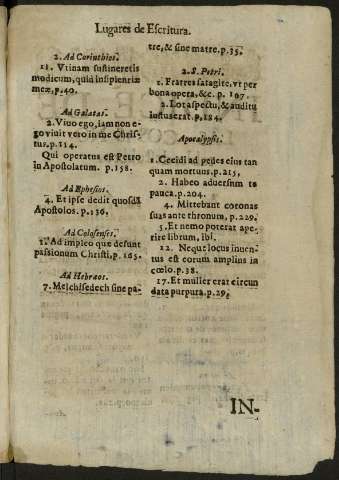 Lugares de Escritura.
2. Ad Corinthios.
11. Vtinam sustineretis
modicum, quid insipientiæ
meæ, p.40.
Ad Galatas.
2. Viuo ego, iam non e-
go viuit vero in me Chris-
tus. p.114.
Qui operatus est Petro
in Apostolatum. p.158.
Ad Ephesios.
4. Et ipse dedit quosdā
Apostolos. p.136.
Ad Colosenses.
1. Ad impleo que desunt
passionum Christi, p.165.
Ad Hebræos.
7. Melchisedech sine pa-
tre, & sine matre. p.35.
2. S. Petri.
1. Fratres satagite, vt per
bona opera, &c. p. 167.
2. Lot aspectu, & auditu
iustus erat. p.184.
Apocalypsis.
1. Cecidi ad pedes eius tan
quam mortuus. p.215,
2. Habeo aduersum te
pauca. p.204.
4. Mittebant coronas
suas ante thronum, p.229.
5. Et nemo poterat ape-
rire librum, ibi.
12. Neque locus inuen-
tus est eorum amplius in
cœlo. p.38.
17. Et mulier erat circun
data purpura. p.29.
IN-